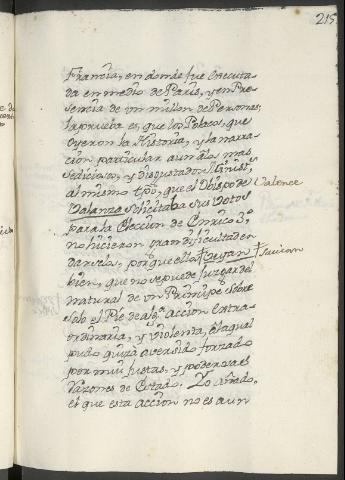 215
Francia, en donde fue executa-
da en medio de Paris, y en Pre-
sencia de un millon de Personas;
la prueba es, que los Polacos, que
oyeron la Historia, y la narra-
cion particular aun à los mas
sediciosos, y disgustados Minist.s
al mismo tpõ, que el Obispo de Valence
Valanza solicitaba sus Votos
para la Eleccion de Enrico 3.º
no hicieron gran dificultad en
darselos, porque ellos Veyan † savian
bien, que no se puede juzgar del
natural de un Principe sobre
solo el Pie de alg.ª accion Extra-
ordinaria, y violenta, à la qual
pudo quiza aver sido forzado
por mui justas, y poderosas
Razones de Estado. Yo añado,
es que esta accion no es aun